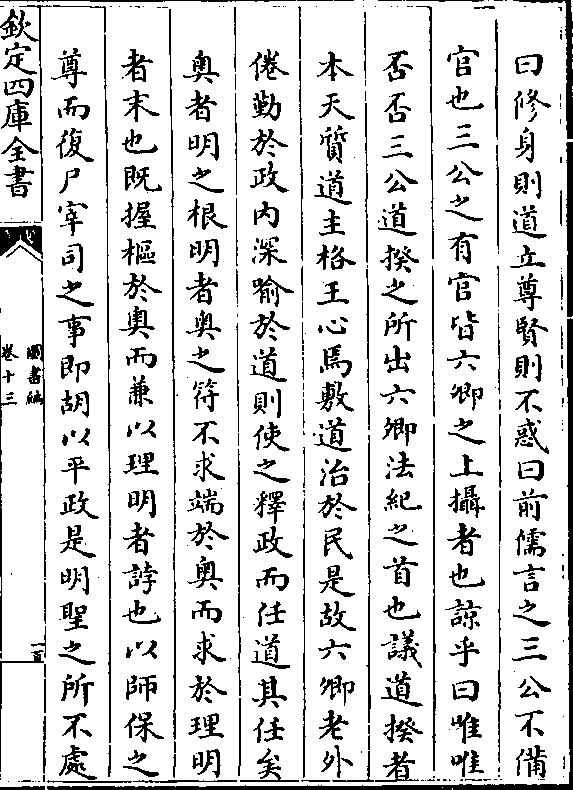 曰修身則道立尊賢則不惑曰前儒言之三公不備
官也三公之有官皆六卿之上攝者也諒乎曰唯唯
否否三公道揆之所出六卿法紀之首也議道揆者
本天質道主格王心焉敷道治於民是故六卿老外
倦勤於政内深喻於道則使之釋政而任道其任矣
奥者明之根明者奥之符不求端於奥而求於理明
者末也既握樞於奥而兼以理明者誖也以師保之
尊而復尸宰司之事即胡以平政是明聖之所不處
欽定四庫全書
圖書編
卷十三